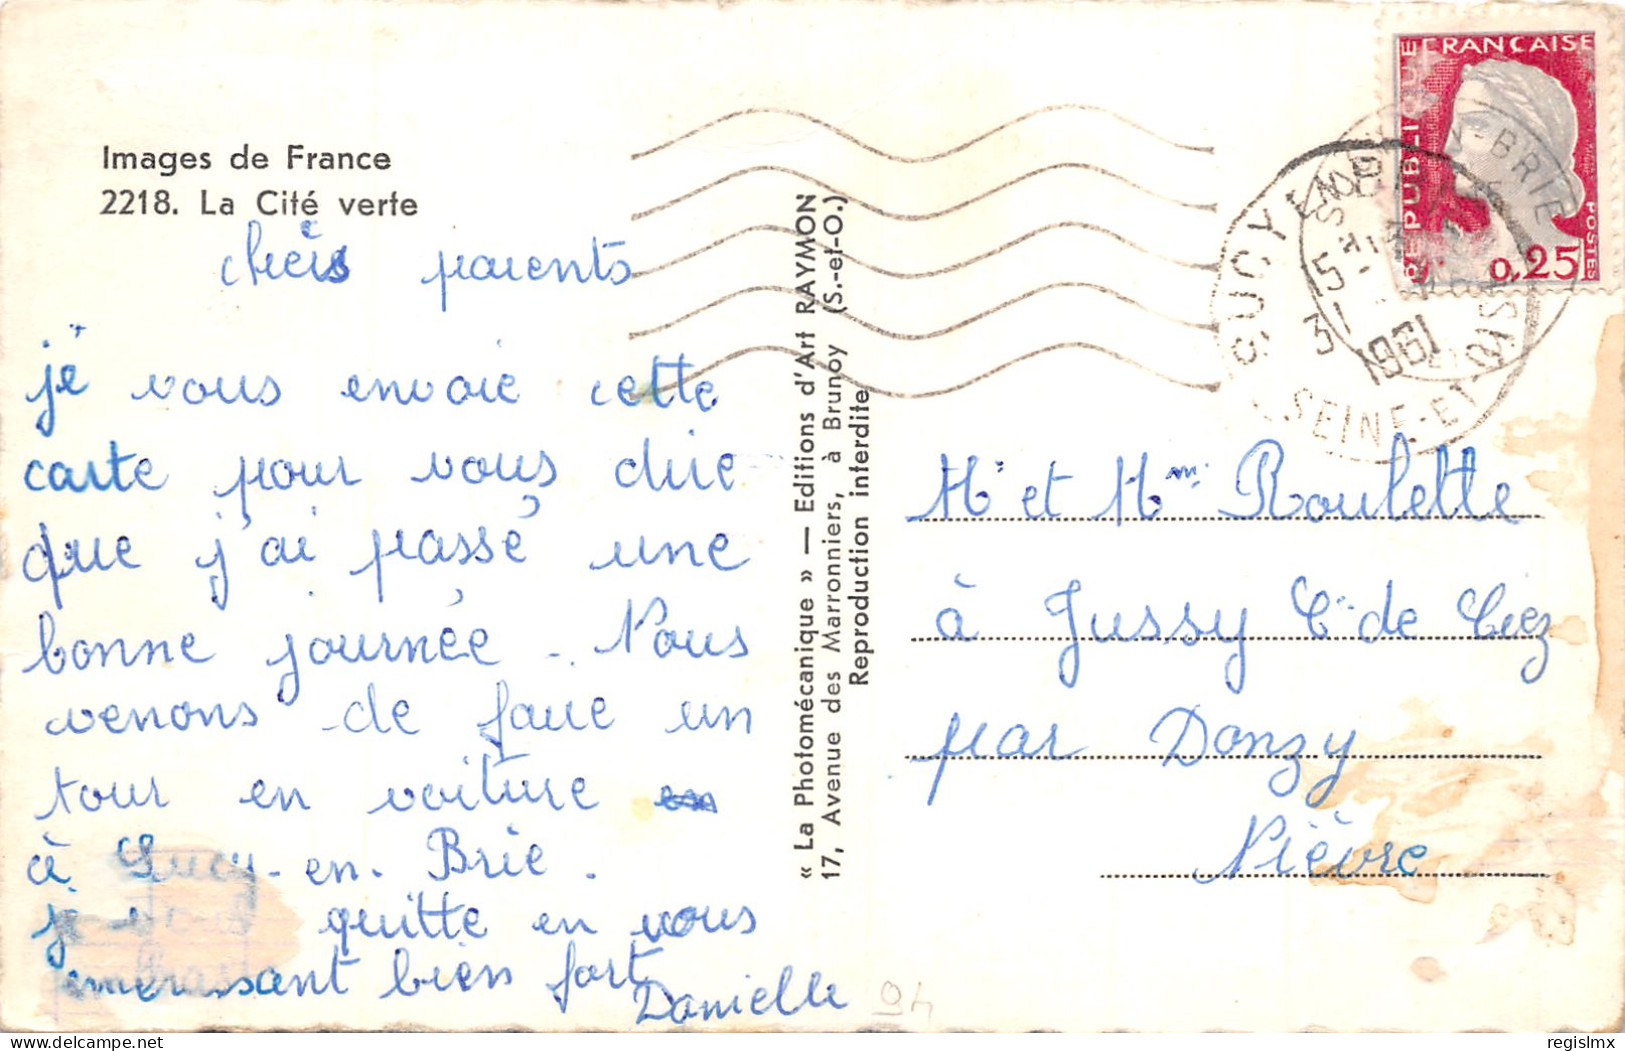 Images de France
2218. La Cité verte
chers parents
je vous envoie cette
carte pour vous dire
que j'ai passé une
bonne journée. Nous
venons de faire un
tour en voiture
à Sucy-en-Brie.
je vous quitte en vous
embrassant bien fort
Danielle
« La Photomécanique » — Editions d'Art RAYMON
17, Avenue des Marronniers, à Brunoy (S.-et-O.)
Reproduction interdite
REPUBLIQUE FRANÇAISE
POSTES
0,25
SUCY EN BRIE
1961
SEINE-ET-OISE
Mr et Mme Roulette
à Jussy Cne de Ciez
par Donzy
Nièvre
94
regislmx